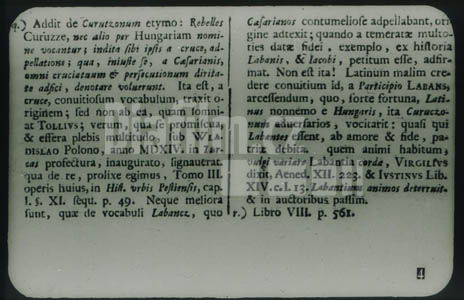 q.) Addit de Curutzonum etymo: Rebelles
Curuzze, nec alio per Hungariam nomi-
ne vocantur; indita sibi ipsis a cruce, ad-
pellations; qua, iniuste se, a Caesarianis,
omni cruciatuum & persecutionum dirita-
te adfici, denotare voluerunt. Ita est, a
cruce, convitiosum vocabulum, traxit o-
riginem; sed non ab ea, quam somni-
at TOLLIVS; verum, qua se promiscua,
& effera plebis multitudo, sub WLA-
DISLAO Polono, anno MDXIV. in Tur-
cas profectura, inaugurato, signauerat.
qua de re, prolixe egimus, Tomo III.
operis huius, in Hist. vrbis Pestiensis, cap.
I. §. XI. sequ. p. 49. Neque meliora
sunt, quæ de vocabuli Labancz, quo
Caesarianos contumeliose adpellabant, ori-
gine adtexit; quando a temeratæ multo-
ties datæ fidei, exemplo, ex historia
Labanis, & Iacobi, petitum esse, adfir-
mat. Non est ita! Latinum malim cre-
dere conuitium id, a Participio LABANS,
arcessendum, quo, forte fortuna, Lati-
nus nonnemo e Hungaris, ita Curuczo-
num aduersarios, vocitarit; quasi qui
Labantes essent, ab amore & fide, pa-
triæ debita. quem animi habitum,
vulgi variare Labantia corda, VIRGILIVS
dixit, Aened. XII. 223. & IVSTINVS Lib.
XIV. c. I. 13. Labantium animos deterruit.
& in auctoribus passim.
r.) Libro VIII. p. 561.
4